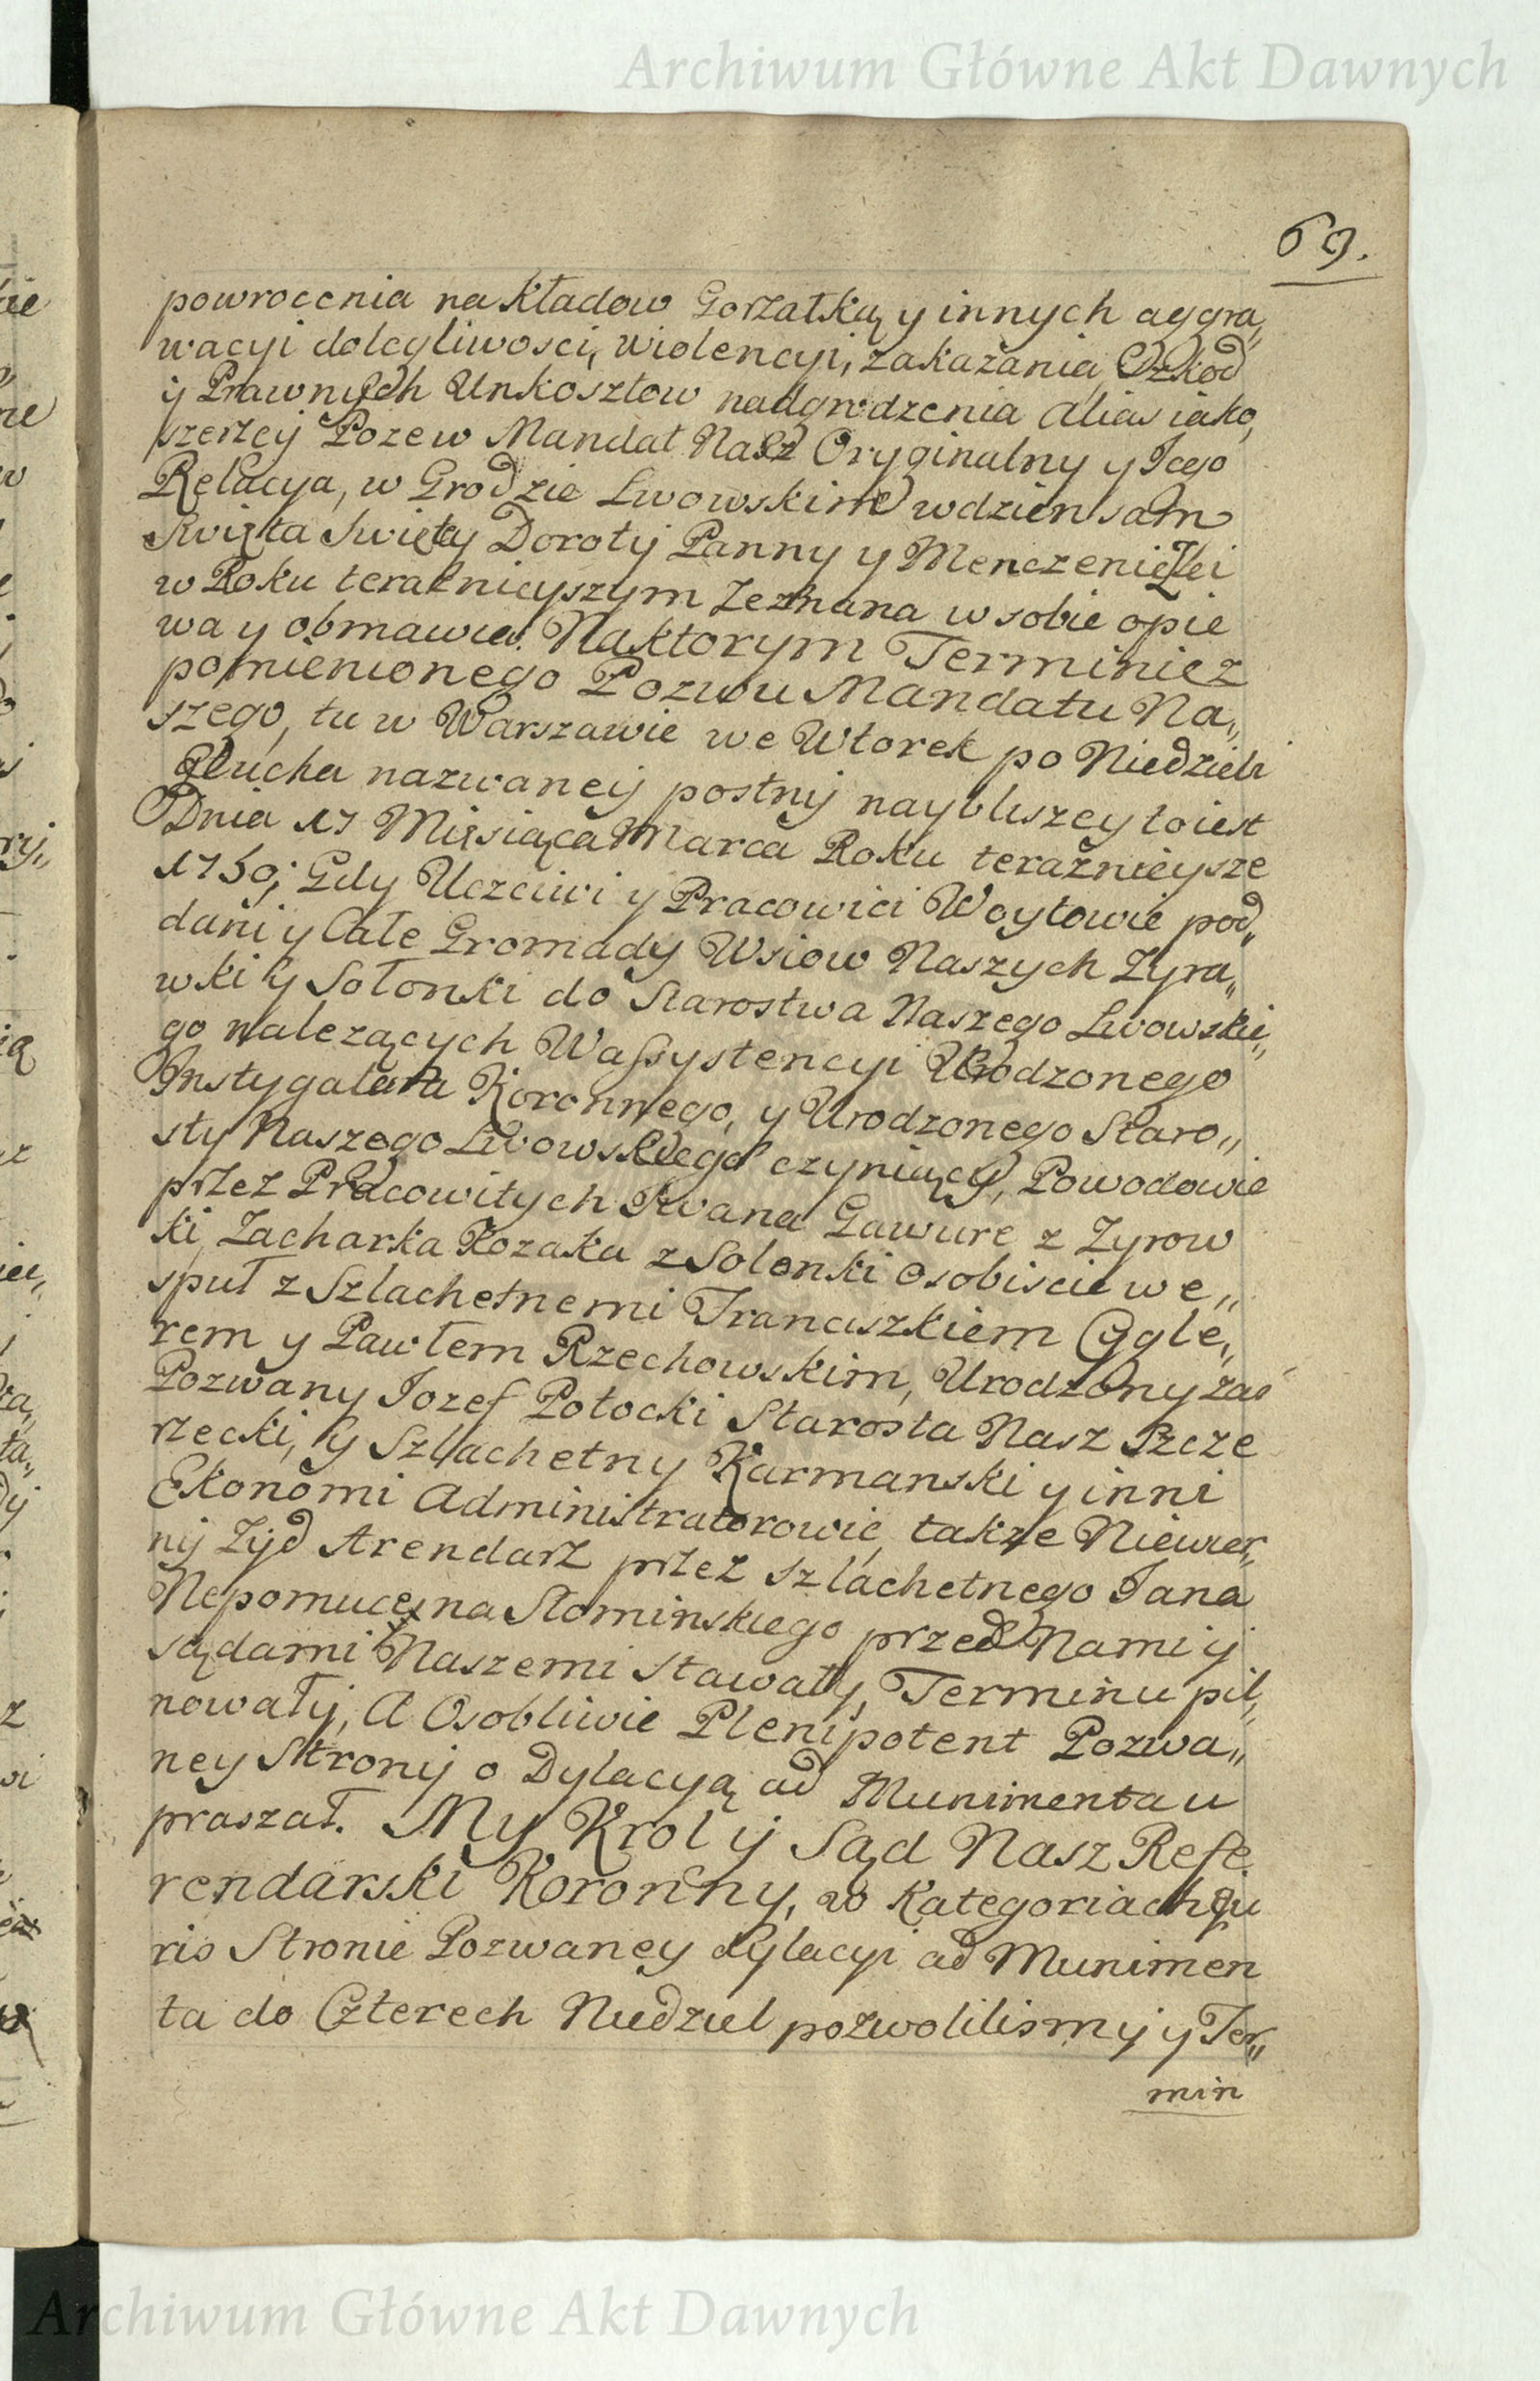 Archiwum Główne Akt Dawnych
69.
powrocenia nakładow Gorzałką y innych aggra„
wacyi dolegliwosci, wiolencyi, zakazania Szkod
ij Prawnych Unkosztow nadgrodzenia alias iako,
szerzey Pozew Mandat Nasz Oryginalny y Iego
Relacya, w Grodzie Lwowskim wdzien sam
Swięta Swięty Doroty Panny y Menczeniczki
w Roku teraznieyszym Zeznana w sobie opie
wa y obmawia. Naktorym Terminie z
pomienionego Pozwu Mandatu Na„
szego, tu w Warszawie we Wtorek po Niedzieli
Głucha nazwaney postny naybliszey toiest
Dnia 17 Miesiąca Marca Roku teraznieysze
1750; Gdy Uczciwi y Pracowici Woytowie pod„
dani y Całe Gromady Wsiow Naszych Zyra„
wki y Sołonki do Starostwa Naszego Lwowskie„
go nalezących Wassystencyi Urodzonego
Instygatora Koronnego, y Urodzonego Staro„
sty Naszego Lwowskiego czyniący, Powodowie
przez Pracowitych Iwana Gawure z Zyrow
ki, Zacharka Kozaka z Solonki osobiscie we„
społ z Szlachetnemi Franciszkiem Ogle„
rem y Pawłem Rzechowskim, Urodzony zas
Pozwany Iozef Potocki Starosta Nasz Szcze
rzecki, y Szlachetny Karmanski y inni
Ekonomi Administratorowie, takze Niewier„
ny Zyd Arendarz przez szlachetnego Jana
Nepomucena Słominskiego przed Nami y
sądami Naszemi stawały, Terminu pil„
nowały, A Osobliwie Plenipotent Pozwa„
ney Strony o Dylacyą ad Munimenta u
praszał. My Krol y Sąd Nasz Refe
rendarski Koronny, w Kategoriach Iu
ris Stronie Pozwaney dylacyi ad Munimen
ta do Czterech Niedziel pozwolilismy y Ter„
min
Archiwum Główne Akt Dawnych